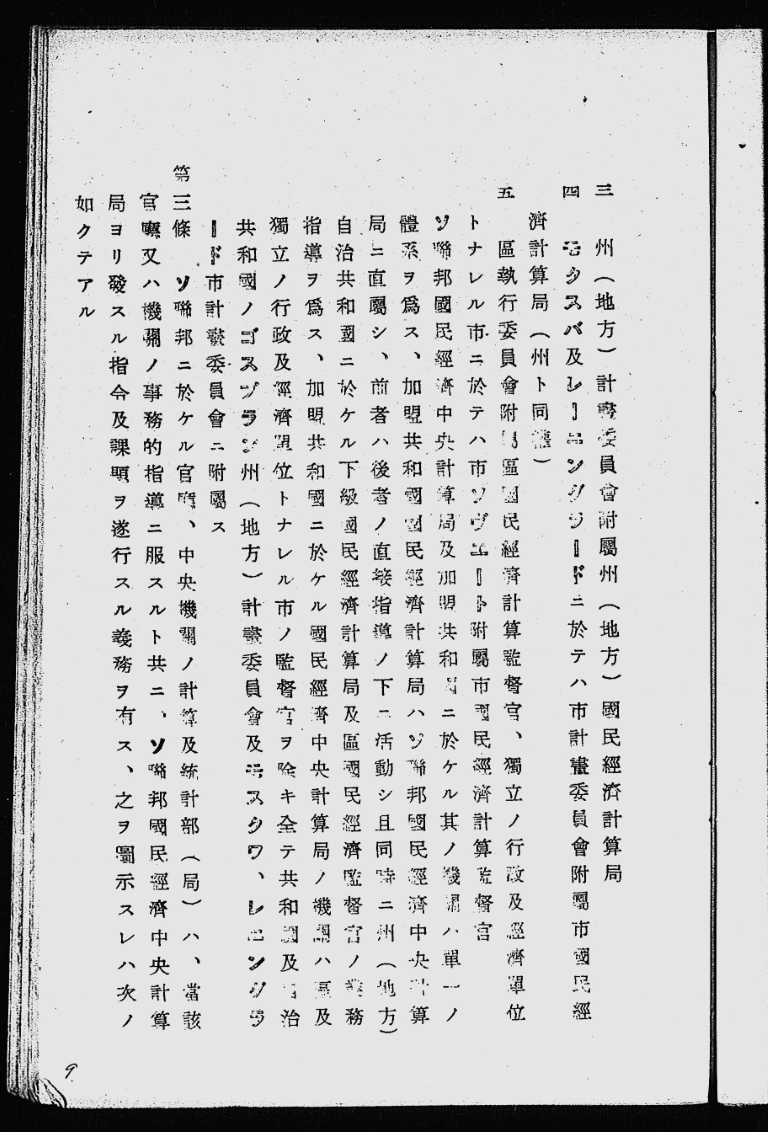 三　州（地方）計畫委員會附屬州（地方）國民經濟計算局
四　モクスバ及レーニングラードニ於テハ市計畫委員會附屬市國民經
濟計算局（州ト同樣）
五　區執行委員會附屬區國民經濟計算監督官、獨立ノ行政及經濟單位
トナレル市ニ於テハ市ソヴエート附屬市國民經濟計算監督官
ソ聯邦國民經濟中央計算局及加盟共和國ニ於ケル其ノ機關ハ單一ノ
體系ヲ爲ス、加盟共和國國民經濟計算局ハソ聯邦國民經濟中央計算
局ニ直屬シ、前者ハ後者ノ直接指導ノ下ニ活動シ且同時ニ州（地方）
自治共和國ニ於ケル下級國民經濟計算局及區國民經濟監督官ノ業務
指導ヲ爲ス、加盟共和國ニ於ケル國民經濟中央計算局ノ機關ハ區及
獨立ノ行政及經濟單位トナレル市ノ監督官ヲ除キ全テ共和國及自治
共和國ノゴスプラン州（地方）計畫委員會及モスクワ、レニングラ
ード市計畫委員會ニ附屬ス
第三條　ソ聯邦ニ於ケル官廳、中央機關ノ計算及統計部（局）ハ、當該
官廳又ハ機關ノ事務的指導ニ服スルト共ニ、ソ聯邦國民經濟中央計算
局ヨリ發スル指令及課題ヲ遂行スル義務ヲ有ス、之ヲ圖示スレハ次ノ
如クテアル
9